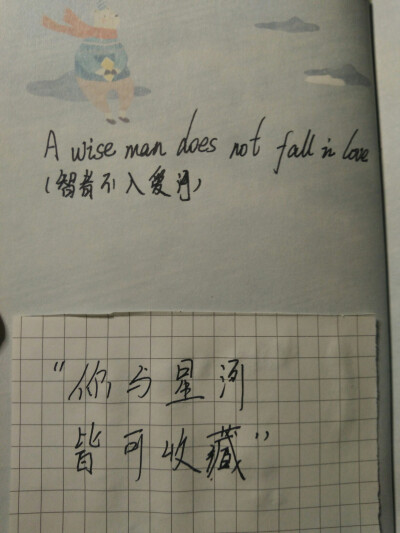 A wise man does not fall in love
(智者不入爱河)
"你与星河
皆可收藏"